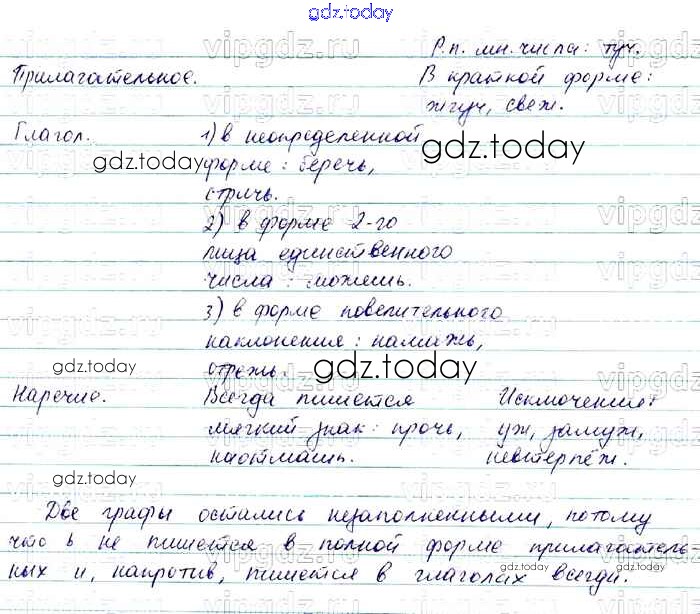 gdz.today
Р.п. мн. числа: туч.
Прилагательное. В краткой форме:
жгуч, свеж.
Глагол. 1) в неопределенной
форме: беречь,
стричь.
2) в форме 2-го
лица единственного
числа: можешь.
3) в форме повелительного
наклонения: намажь,
отрежь.
Наречие. Всегда пишется Исключения:
мягкий знак: прочь, уж, замуж,
наотмашь. невтерпёж.
Две графы остались незаполненными, потому
что ь не пишется в полной форме прилагатель-
ных и, напротив, пишется в глаголах всегда.
gdz.today
gdz.today
gdz.today
gdz.today
gdz.today
gdz.today
vipgdz.ru